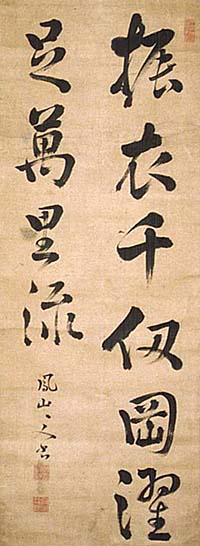 振衣千仞岡濯
足萬里流
鳳山人書